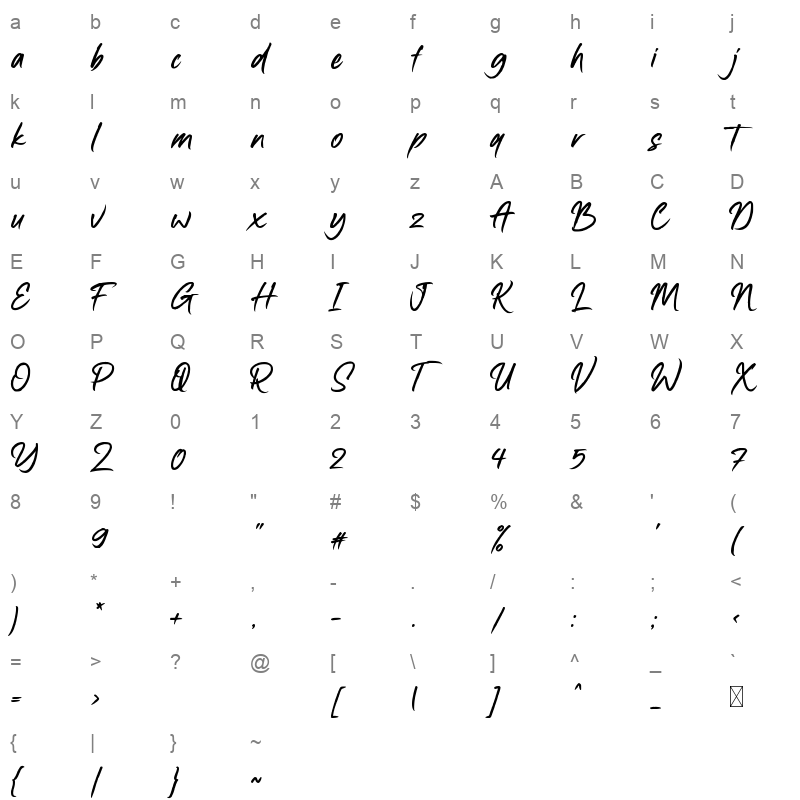 a b c d e f g h i j
a b c d e f g h i j
k l m n o p q r s t
k l m n o p q r s t
u v w x y z A B C D
u v w x y z A B C D
E F G H I J K L M N
E F G H I J K L M N
O P Q R S T U V W X
O P Q R S T U V W X
Y Z 0 1 2 3 4 5 6 7
Y Z 0 2 4 5 7
8 9 ! " # $ % & ' (
9 " # % ' (
) * + , - . / : ; <
) * + , - . / : ; <
= > ? @ [ \ ] ^ _ `
= > [ \ ] ^ _
{ | } ~
{ | } ~